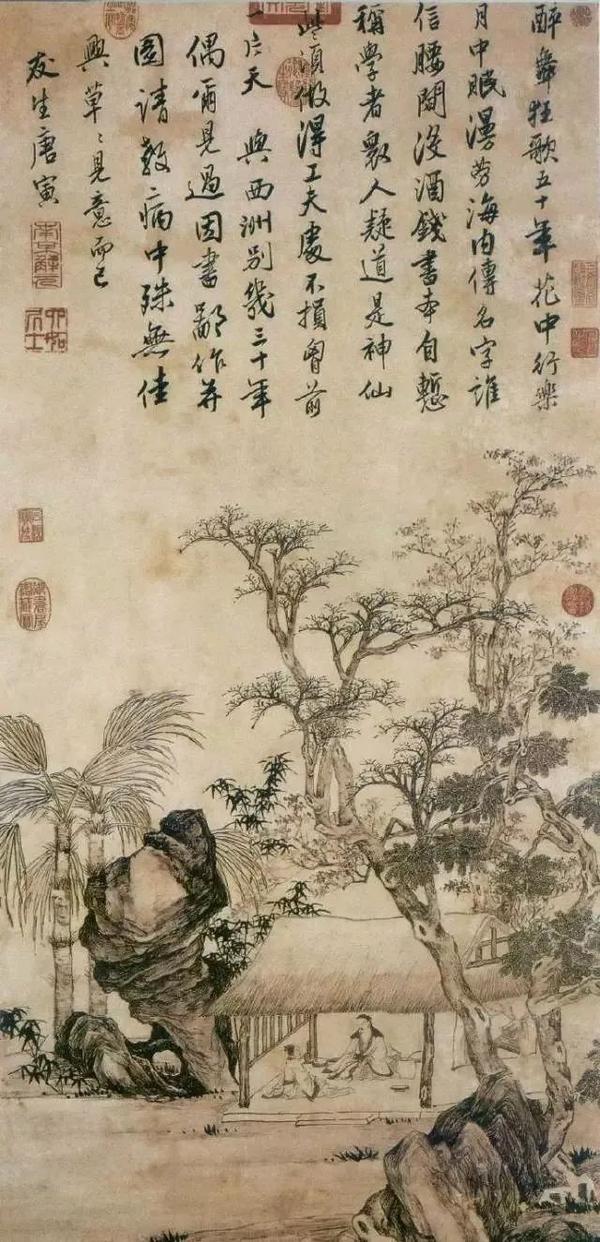 醉舞狂歌五十年花中行樂
月中眠漫勞海内傳名字誰
信腰間沒酒錢書本自慙
稱學者衆人疑道是神仙
些須做得工夫處不損胷前
一片天 與西洲別幾三十年
偶爾見過因書鄙作并
圖請教病中殊無佳
興草〻見意而已
友生唐寅
南京解元
六如居士